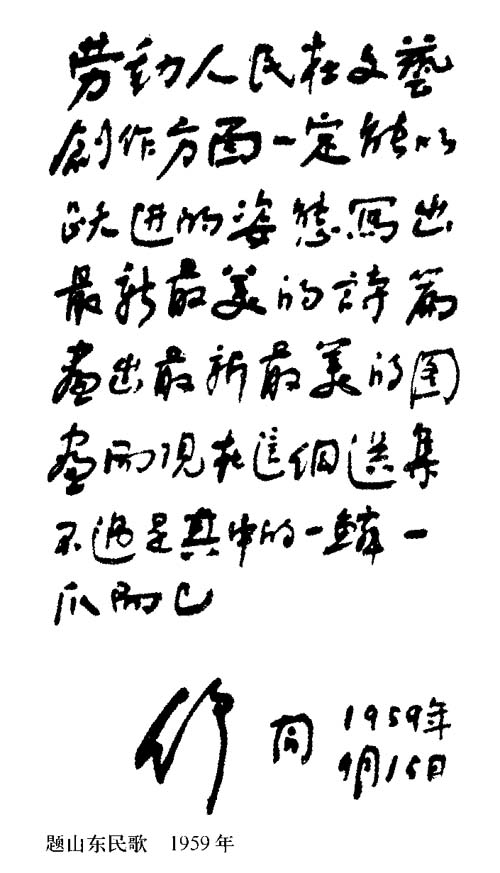 劳動人民在文藝
創作方面一定能以
跃进的姿態寫出
最新最美的詩篇
畫出最新最美的图
畫而现在這個选集
不過是其中的一鳞一
爪而已
舒同 1959年
9月15日
题山东民歌 1959年